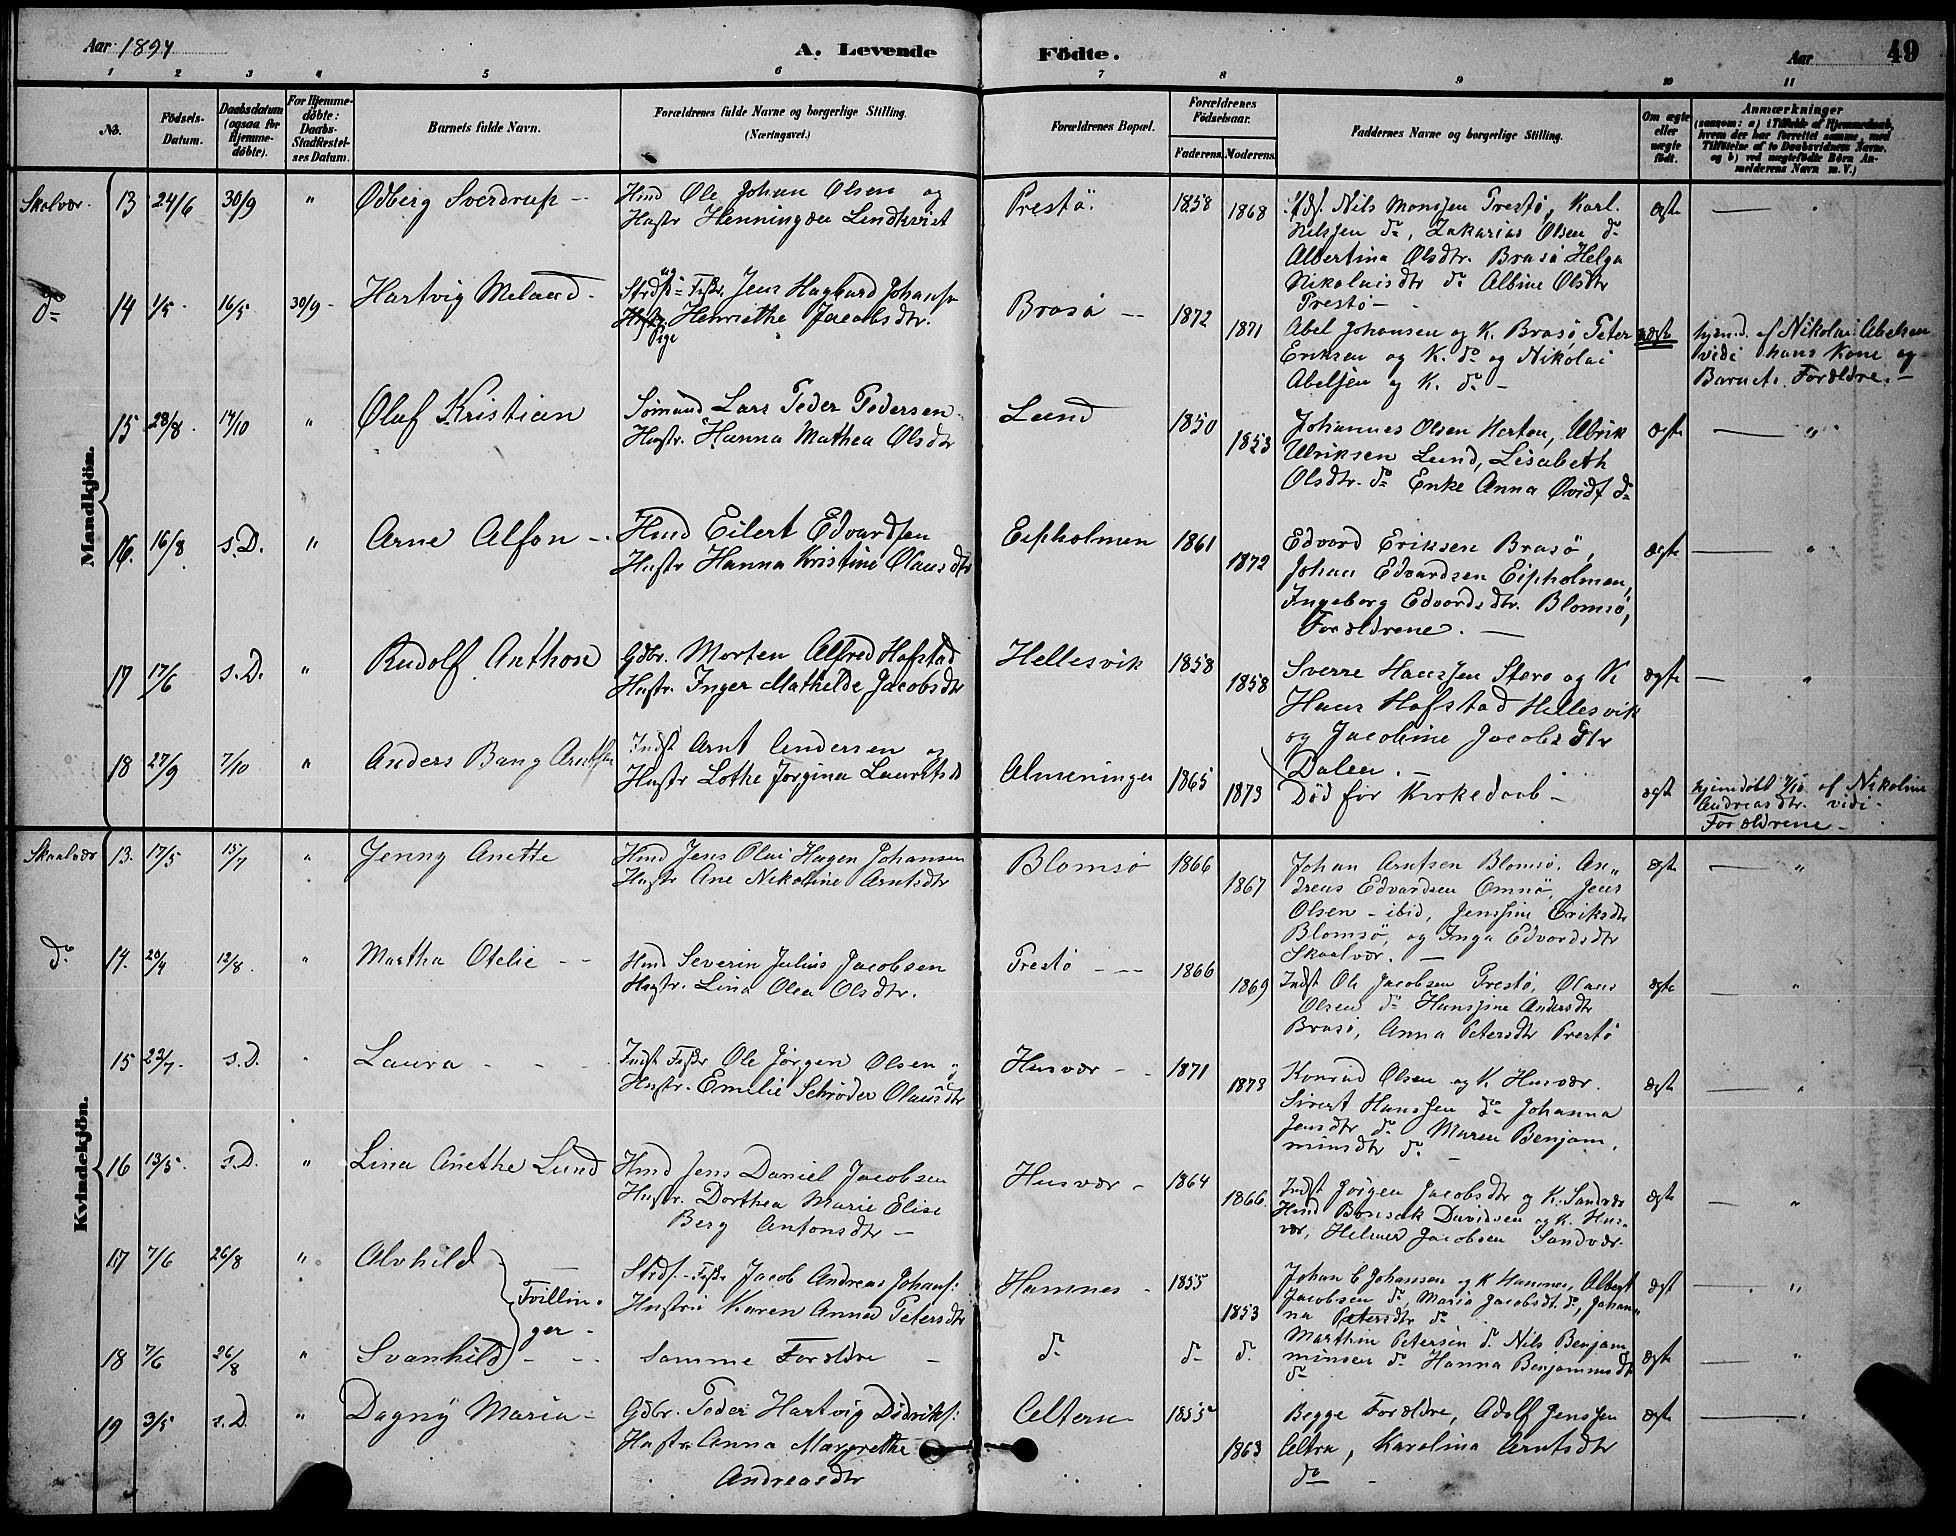 Aar 1894
A. Levende
Födte.
Aar
49
1 2 3 4 5 6 7 8 9 10 11
No.
Födsels-
Datum.
Daabsdatum
(ogsaa for
Hjemme-
döbte).
For Hjemme-
döbte:
Daabs-
Stadfæstel-
ses Datum.
Barnets fulde Navn.
Forældrenes fulde Navne og borgerlige Stilling.
(Næringsvei.)
Forældrenes Bopæl.
Forældrenes
Födselsaar.
Faderens. Moderens.
Faddernes Navne og borgerlige Stilling.
Om ægte
eller
uægte
födt.
Anmærkninger
(saasom: a) i Tilfælde af Hjemmedaab,
hvem der har forrettet samme, med
Tilföielse af to Daabsvidners Navne,
og b) ved uægtefödte Börn An-
melderens Navn m. V.)
Mandkjön.
Skalvær. 13 24/6 30/9 " Ødberg Sverdrup –
Hmd Ole Johan Olsen og
Hustr Henningdea Lindkvist
Prestö. 1858 1868
Nils Monssen Prestö, Karl
Nilssen do, Zakarias Olsen do
Albertina Olsdtr. Brasö Helga
Nikolaisdtr do Albine Olsdtr
Prestö –
ægte
do 14 1/5 16/5 30/9 Hartvig Meland –
og
Jens Hagbard Johans.
Henriethe Jacobsdtr.
Pige
Brasö – 1872 1871
Abel Johansen og K. Brasö Peter
Eriksen og K. do og Nikolai
Abelsen og K. do –
uægte
hjemd. af Nikolai Abelsen
vidi hans Kone og
Barnets Forældre. –
15 28/8 14/10 " Oluf Kristian
Sømand Lars Peder Pedersen
Hustr. Hanna Mathea Olsdtr
Lund 1850 1853
Johannes Olsen Horten, Ulrik
Ulriksen Lund, Lisabeth
Olsdtr. do Enke Anna do
ægte
16. 16/8 s.D. " Arne Alfon –
Hmd Eilert Edvardsen
Hustr Hanna Kristine Olausdtr
Eipholmen 1861 1872
Edvard Eriksen Brasö,
Johan Edvardsen Eipholmen,
Ingeborg Edvardsdtr. Blomsö,
Forældrene. –
ægte
17 17/6 s.D. " Rudolf Anthon
Gdbr. Morten Alfred Hofstad
Hustr. Inger Mathilde Jacobsdtr
Hellesvik 1858 1858
Sverre Hanssen Sterö og K
Hans Hofstad Hellesvik
og Jacobine Jacobsdtr
Dalen. –
ægte
18 27/9 7/10 " Anders Bang Arntsen
Indst Arnt Andersen og
Hustr Lothe Jørgina Lauritsd
Almeninga 1865 1873
Død før Kirkedaab –
ægte
hjemdöbt 7/10 af Nikoline
Andreasdtr. vidi
Forældrene –
Kvindekjön.
Skaalvær 13. 17/5 15/7 " Jenny Anette
Hmd Jens Olai Hagen Johansen
Hustr Ane Nikoline Arntsdtr
Blomsö 1866 1867
Johan Arntsen Blomsö, An-
dreas Edvardsen Omnö, Jens
Olsen – ibid, Jenssine Eriksdtr
Blomsö, og Inga Edvardsdtr
Skaalvær. –
ægte
do 14. 20/4 12/8. " Martha Otelie – –
Hmd Severin Julius Jacobsen
Hustr. Lina Olea Olsdtr.
Prestö – – 1866 1869
Indst Ole Jacobsen Prestö, Olaus
Olsen do Hanssine Andersdtr
Brasö, Anna Petersdtr Prestö
ægte
15 22/7. s.D. " Laura – – –
Indst Ole Jørgen Olsen og
Hustr. Emelie Schrøder Olausdtr
Husvær – – 1871 1873
Konrad Olsen og K. Husvær.
Sivert Hanssen do Johanna
Jensdtr do Maren Benjam-
minsdtr do –
ægte
16 13/5. s.D. " Lina Anethe Lund
Hmd Jens Daniel Jacobsen
Hustr. Dorthea Marie Elise
Berg Antonsdtr –
Husvær – 1864 1866.
Indst Jørgen Jacobsdtr og K. Sandvær
Hmd Bonsak Davidsen og K. Hus-
vær, Helmer Jacobsen Sandvær.
ægte
17 7/6 26/8 " Alvhild –
Tvillin-
ger –
Jacob Andreas Johans:
Hustru Karen Anna Petersdtr
Hamnes – 1855 1853
Johan C Johansen og K Hamnes, Albert
Jacobsen do, Maria Jacobsdt. do, Johan-
na Petersdtr do
ægt
18 7/6 26/8 " Svanhild – –
Samme Forældre –
do do do
Marthin Petersen do Nils Benjam
minsen do Hanna Benjaminsdtr
do
ægte
19 3/5 s.D. " Dagny Maria –
Gdbr. Peder Hartvig Didriks:
Hustr Anna Margrethe
Andreasdtr
Altern 1855 1863
Begge Forældre, Adolf Jenssen
Altra, Karolina Arntsdtr
do –
ægte